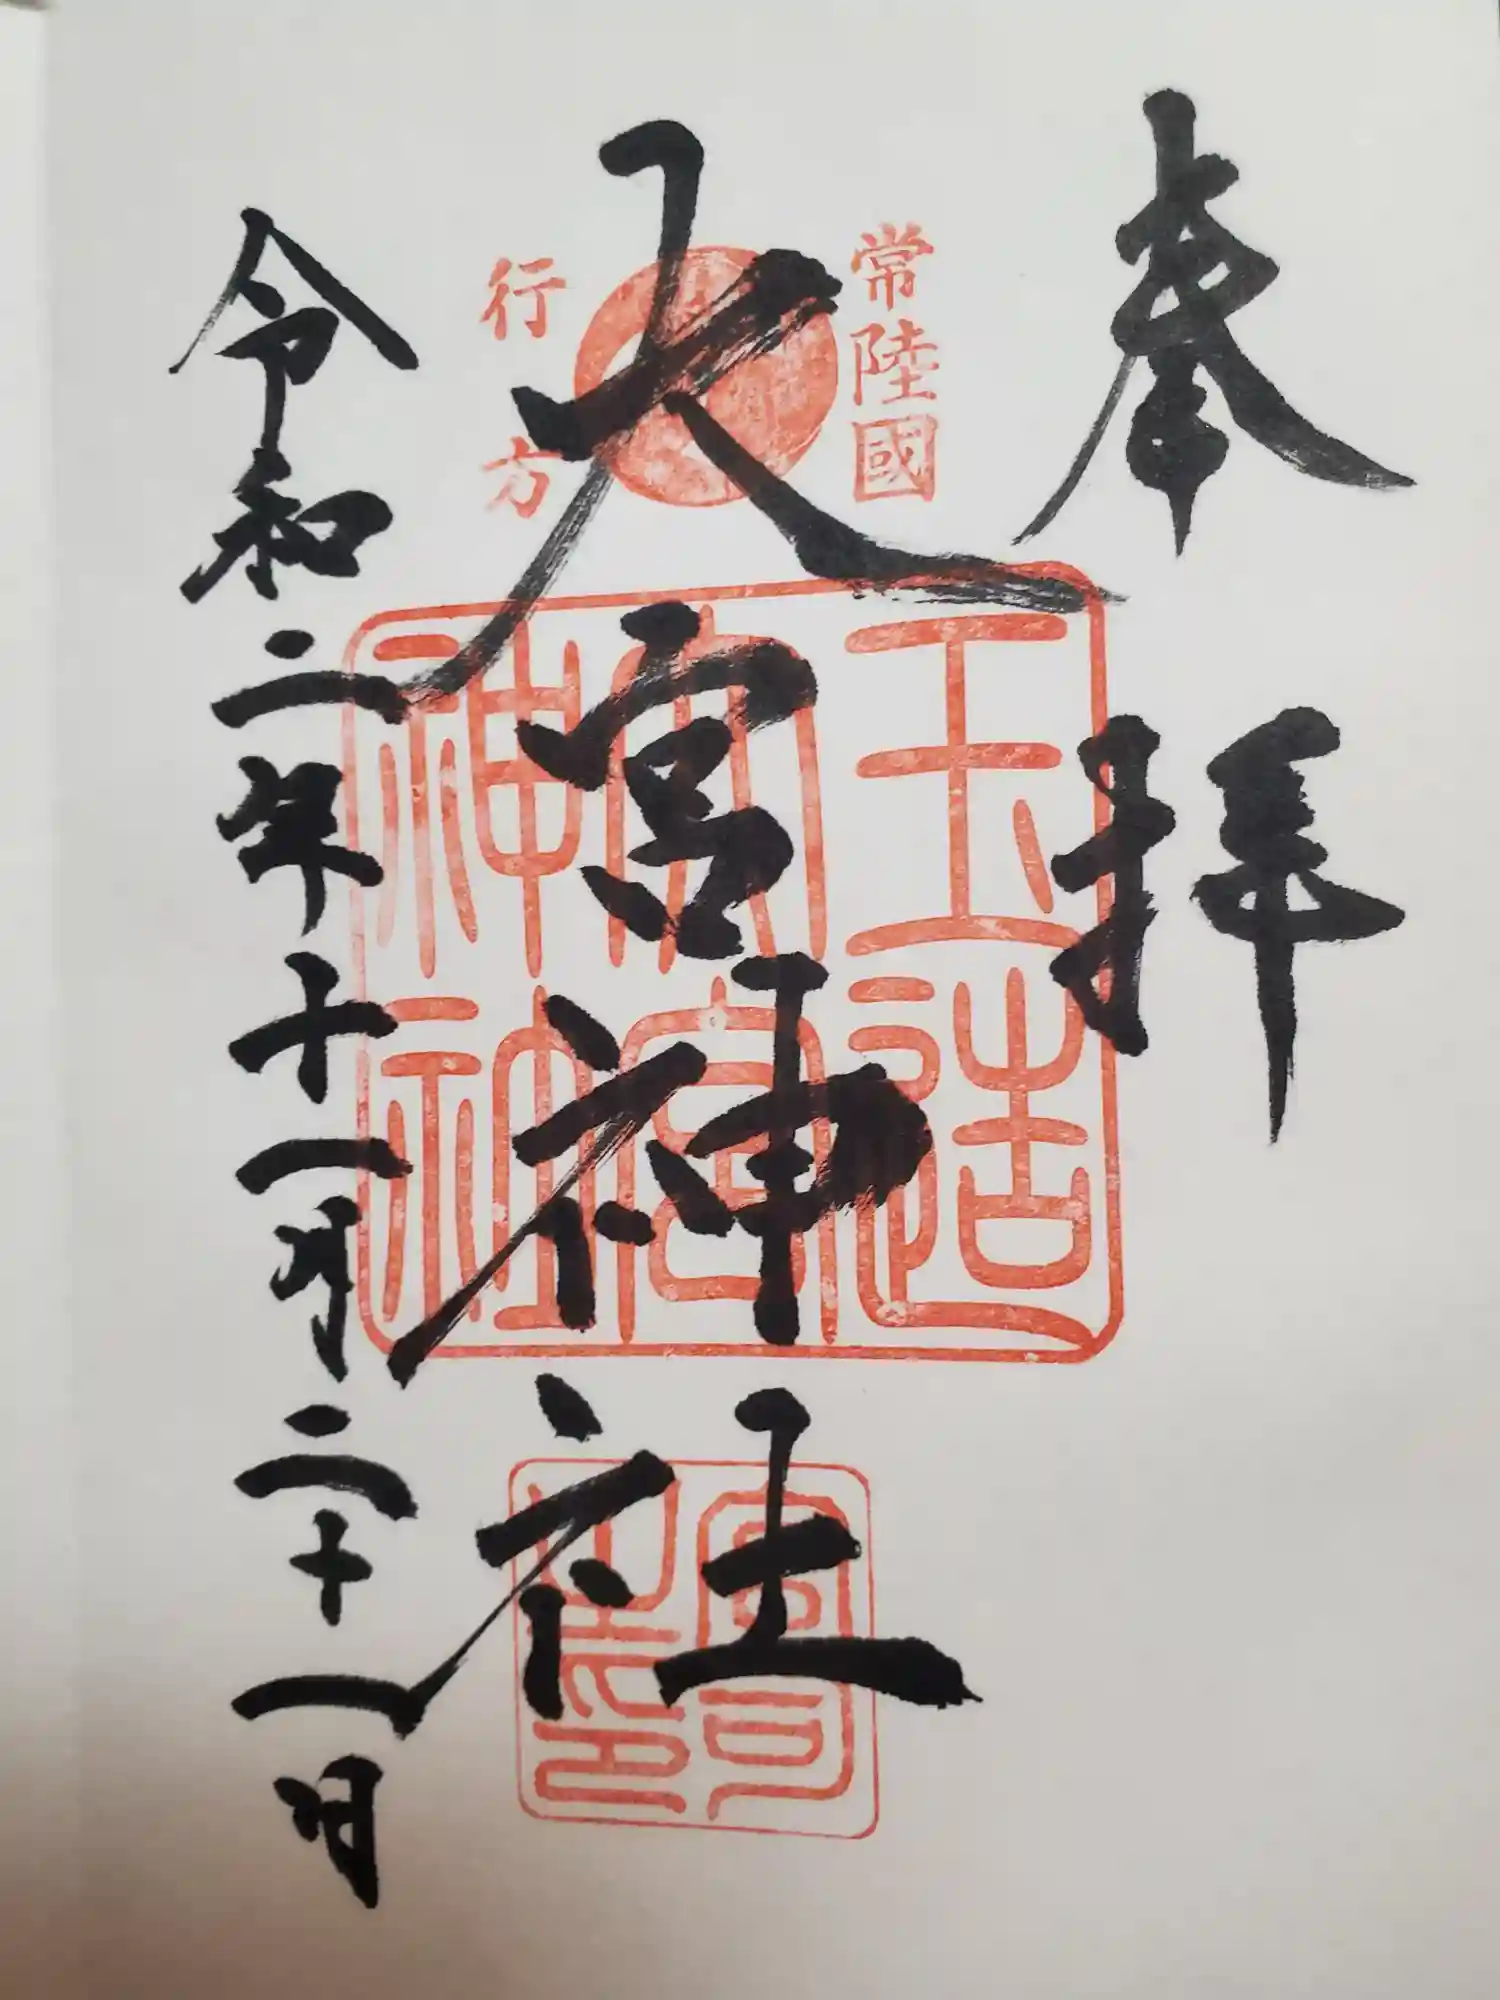 奉拝
常陸國
大宮神社
行方
玉造大宮神社
宮司之印
令和二年十一月二十一日